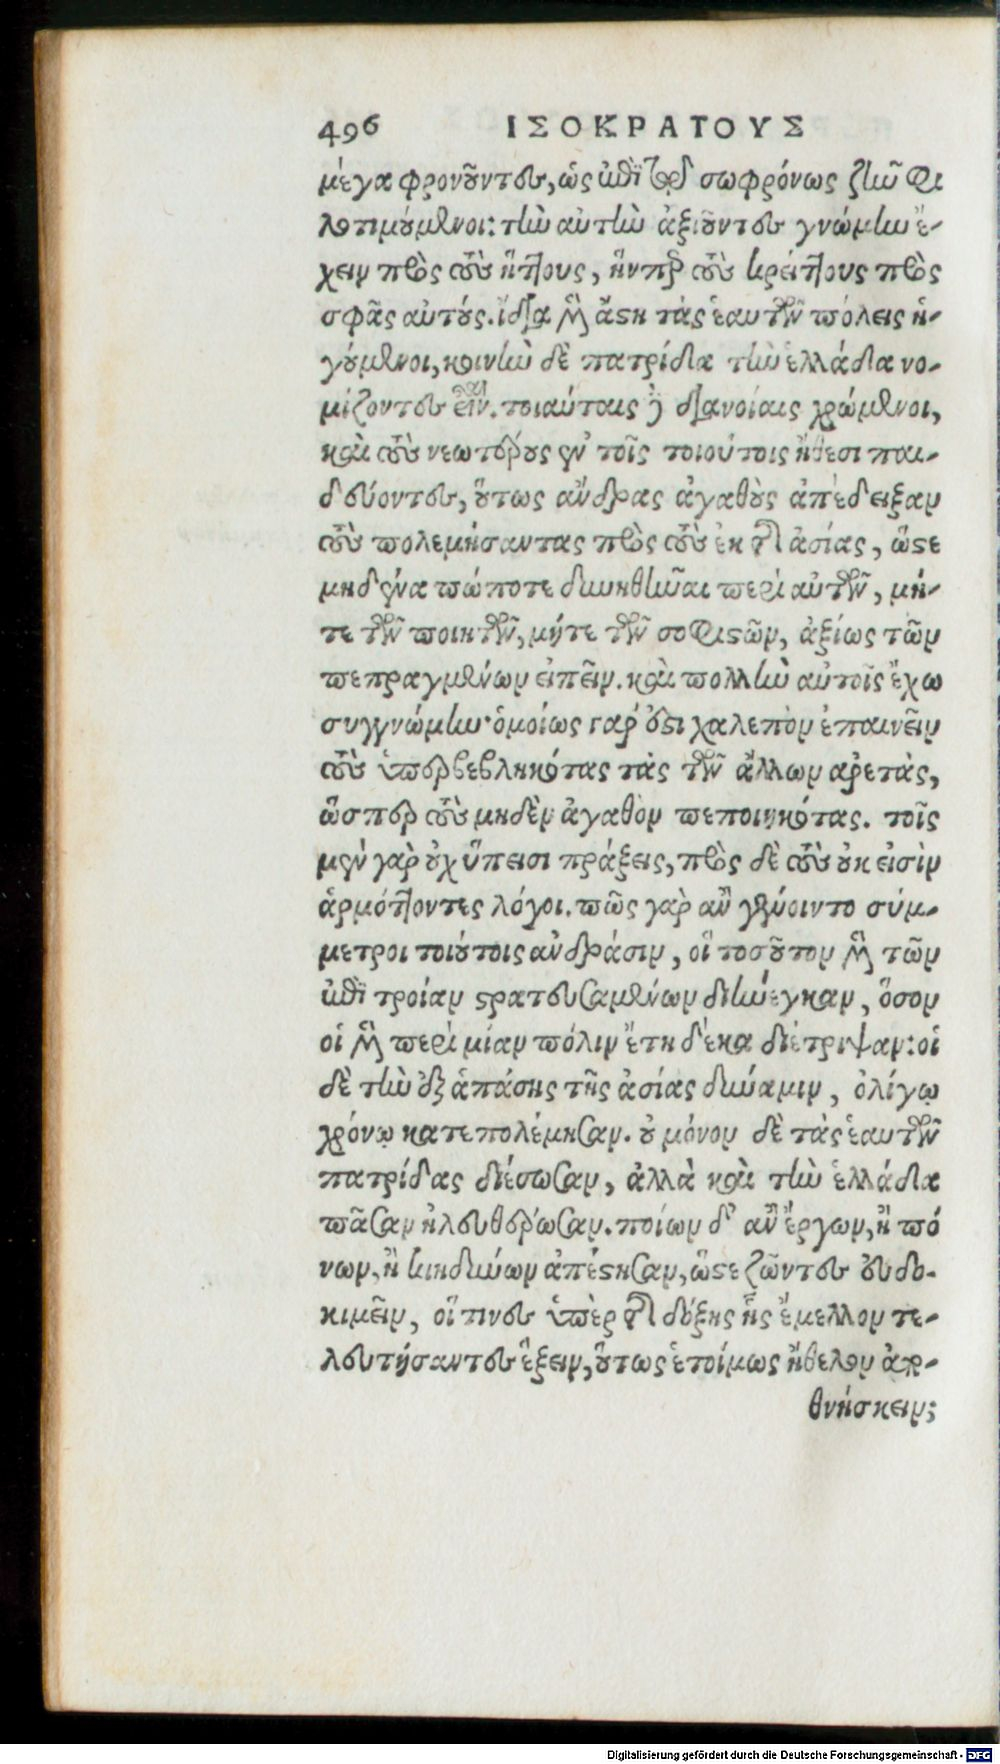 496 ΙΣΟΚΡΑΤΟΥΣ
μέγα φρονοῦντες, ὡς ἐπὶ τῷ σωφρόνως ζῆν φι
λοτιμούμενοι: τὴν αὐτὴν ἀξιοῦντες γνώμην ἔ-
χειν πρὸς τοὺς ἥττους, ἥνπερ τοὺς κρείττους πρὸς
σφᾶς αὐτούς. ἴδια μὲν ἄστη τὰς ἑαυτῶν πόλεις ἡ-
γούμενοι, κοινὴν δὲ πατρίδα τὴν ἑλλάδα νο-
μίζοντες εἶναι. τοιαύταις δὲ διανοίαις χρώμενοι,
καὶ τοὺς νεωτέρους ἐν τοῖς τοιούτοις ἤθεσι παι-
δεύοντες, οὕτως ἄνδρας ἀγαθοὺς ἀπέδειξαν
τοὺς πολεμήσαντας πρὸς τοὺς ἐκ τῆς ἀσίας, ὥστε
μηδένα πώποτε δυνηθῆναι περὶ αὐτῶν, μή-
τε τῶν ποιητῶν, μήτε τῶν σοφιστῶν, ἀξίως τῶν
πεπραγμένων εἰπεῖν. καὶ πολλὴν αὐτοῖς ἔχω
συγγνώμην· ὁμοίως γάρ ἐστι χαλεπὸν ἐπαινεῖν
τοὺς ὑπερβεβληκότας τὰς τῶν ἄλλων ἀρετὰς,
ὥσπερ τοὺς μηδὲν ἀγαθὸν πεποιηκότας. τοῖς
μὲν γὰρ οὐχ ὕπεισι πράξεις, πρὸς δὲ τοὺς οὐκ εἰσὶν
ἁρμόττοντες λόγοι. πῶς γὰρ ἂν γένοιντο σύμ-
μετροι τοιούτοις ἀνδράσιν, οἳ τοσοῦτον μὲν τῶν
ἐπὶ τροίαν στρατευσαμένων διήνεγκαν, ὅσον
οἱ μὲν περὶ μίαν πόλιν ἔτη δέκα διέτριψαν: οἱ
δὲ τὴν ἐξ ἁπάσης τῆς ἀσίας δύναμιν, ὀλίγῳ
χρόνῳ κατεπολέμησαν. οὐ μόνον δὲ τὰς ἑαυτῶν
πατρίδας διέσωσαν, ἀλλὰ καὶ τὴν ἑλλάδα
πᾶσαν ἠλευθέρωσαν. ποίων δ' ἂν ἔργων, ἢ πό
νων, ἢ κινδύνων ἀπέστησαν, ὥστε ζῶντες εὐδο-
κιμεῖν, οἵ τινες ὑπὲρ τῆς δόξης ἧς ἔμελλον τε-
λευτήσαντες ἕξειν, οὕτως ἑτοίμως ἤθελον ἀπο-
θνήσκειν;
Digitalisierung gefördert durch die Deutsche Forschungsgemeinschaft - DFG